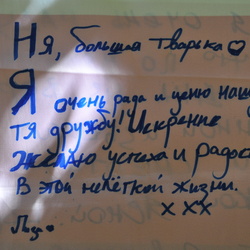 Ня, большая Тварька♡
Я очень рада и ценю наш
тя дружбу! Искренне
желаю успеха и радос
В этой нелёгкой жизни.
xxx